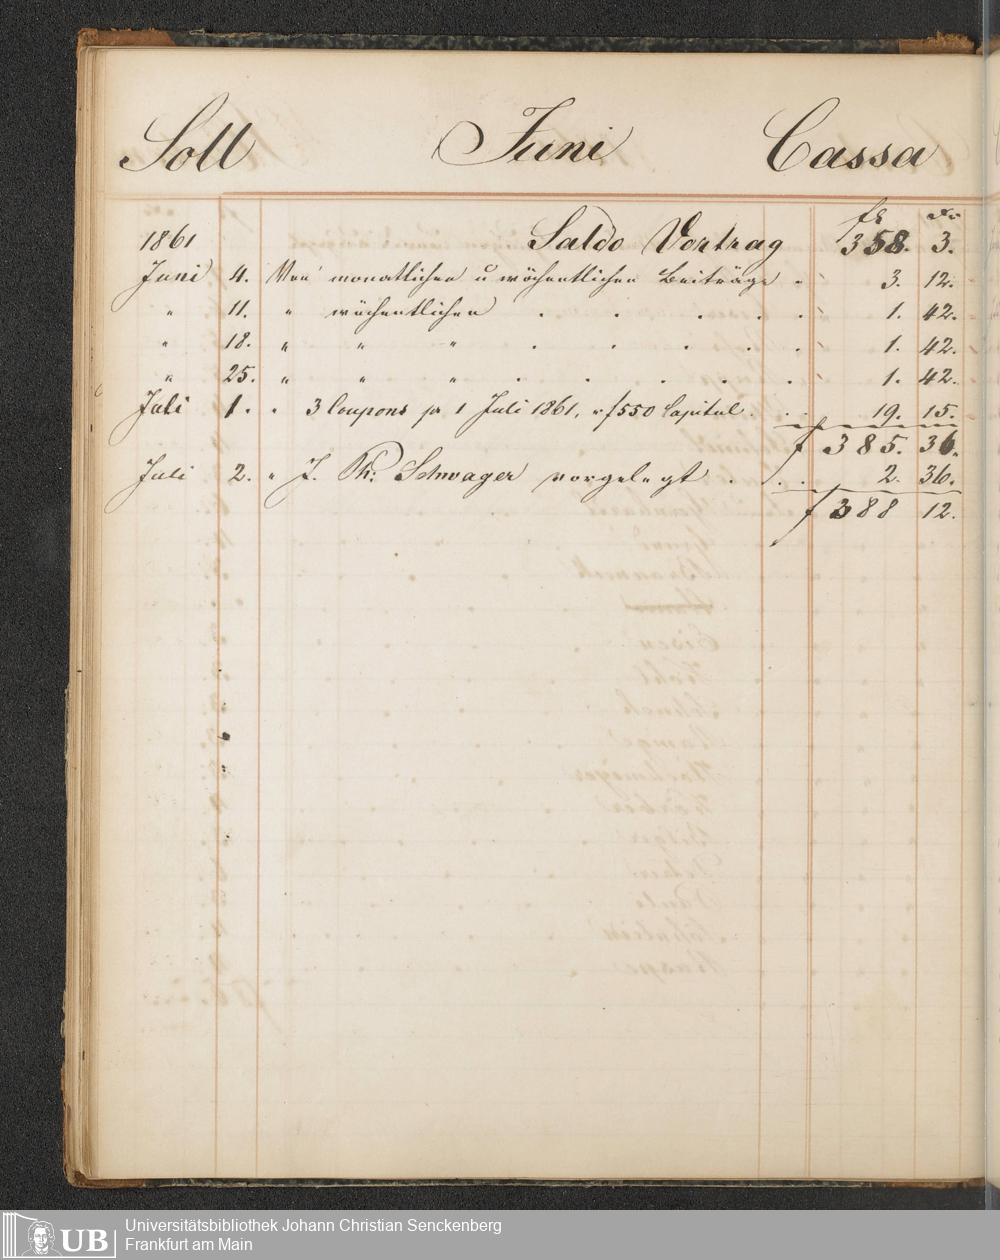 Soll Juni Cassa
fl xr
1861 Saldo Vortrag 358. 3.
Juni 4. Von monatlichen u wöchentlichen Beiträge " 3. 12.
" 11. " wöchentlichen . . . . . 1. 42.
" 18. " " " . . . . . 1. 42.
" 25. " " " . . . . . 1. 42.
Juli 1. " 3 Coupons pr 1 Juli 1861, f 550 Capital . . 19. 15.
f 385. 36.
Juli 2. " J. Ph: Schwager vorgelegt . . . 2. 36.
f 388 12.
UB Universitätsbibliothek Johann Christian Senckenberg
Frankfurt am Main